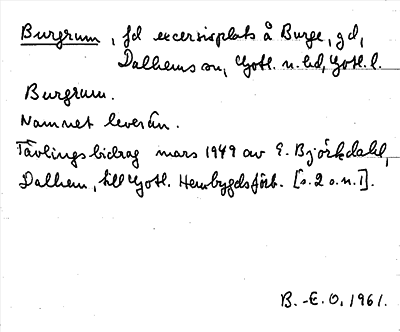 Burgrum, fd excersisplats å Burge, gd,
Dalhems sn, Gotl. n. hd, Gotl. l.
Burgrum.
Namnet lever än.
Tävlingsbidrag mars 1949 av E. Björkdahl,
Dalhem, till Gotl. Hembygdsförb. [s. 2 o. n. 1].
B.-E. O. 1961.